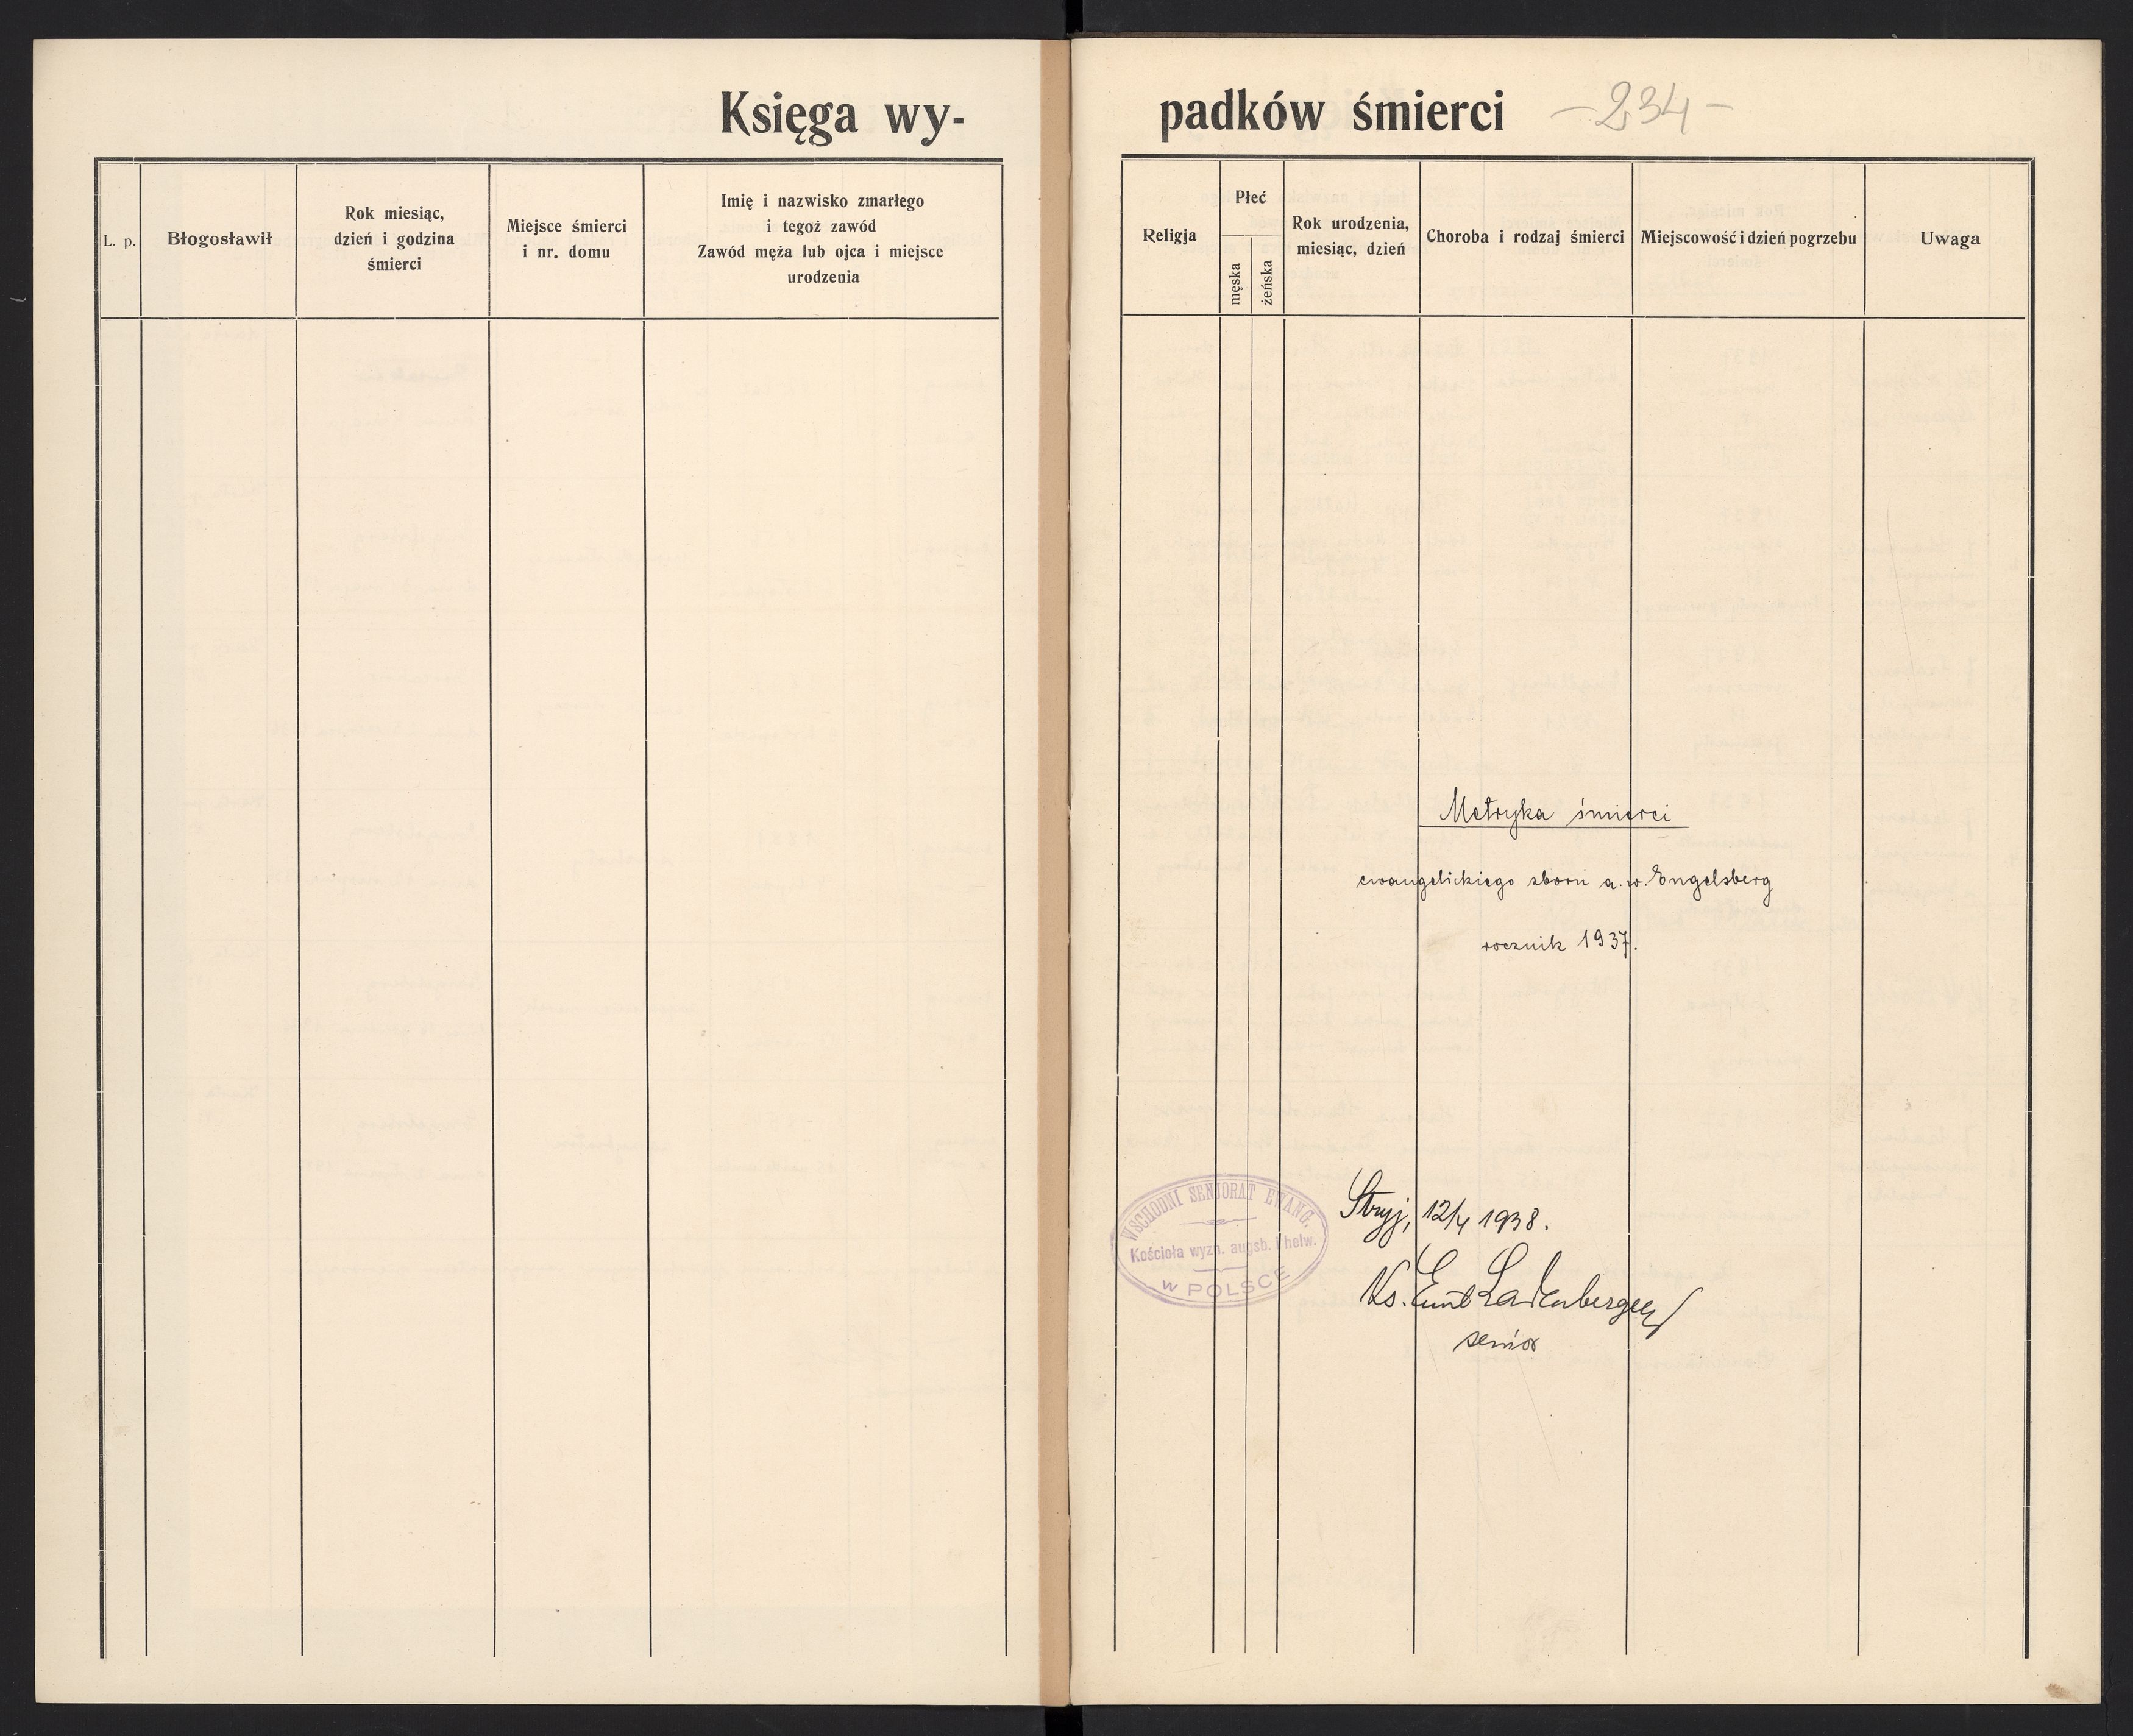 Księga wy-
L. p.
Błogosławił
Rok miesiąc,
dzień i godzina
śmierci
Miejsce śmierci
i nr. domu
Imię i nazwisko zmarłego
i tegoż zawód
Zawód męża lub ojca i miejsce
urodzenia
padków śmierci
-234-
Religja
Płeć
męska
żeńska
Rok urodzenia,
miesiąc, dzień
Choroba i rodzaj śmierci
Miejscowość i dzień pogrzebu
Uwaga
Metryka śmierci
ewangelickiego zboru a. w. Engelsberg
rocznik 1937.
WSCHODNI SENJORAT EWANG.
Kościoła wyzn. augsb. i helw.
W POLSCE
Stryj, 12/4 1938.
Ks. Emil Ladenberger
senior